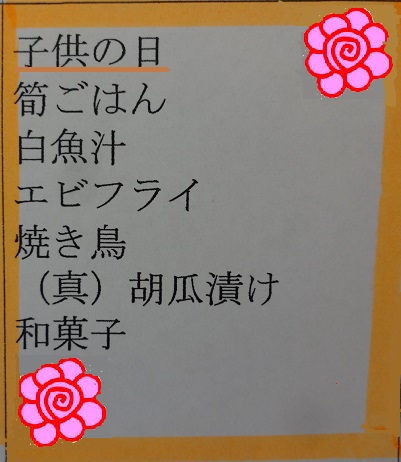 子供の日
筍ごはん
白魚汁
エビフライ
焼き鳥
（真）胡瓜漬け
和菓子